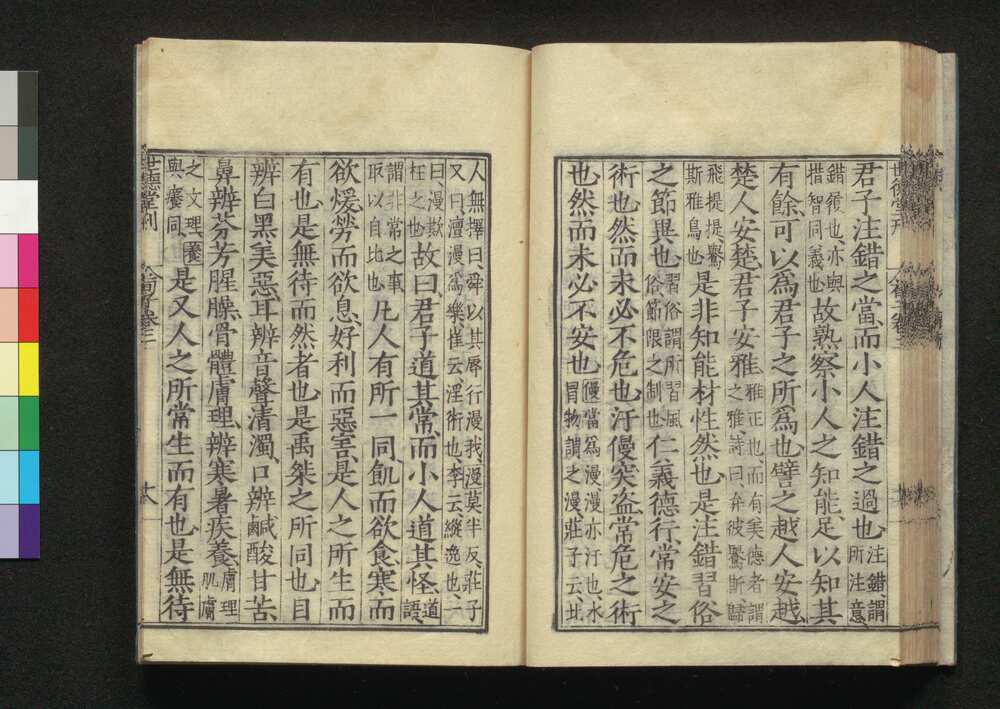 君子注錯之當而小人注錯之過也注錯謂所注意
錯履也亦與措智同義也故熟察小人之知能足以知其
有餘可以爲君子之所爲也譬之越人安越
楚人安楚君子安雅雅正也而有美德者謂之雅詩曰弁彼鸒斯歸
飛提提鸒斯雅烏也是非知能材性然也是注錯習俗
之節異也習俗謂所習風俗節限之制也仁義德行常安之
術也然而未必不危也汙僈突盗常危之術
也然而未必不安也僈當爲漫漫亦汙也水冒物謂之漫莊子云北
人無擇曰舜以其辱行漫我漫莫半反莊子又曰澶漫爲樂崔云淫衍也李云縱逸也一
曰漫欺枉之也故曰君子道其常而小人道其怪道語
謂非常之事取以自比也凡人有所一同飢而欲食寒而
欲煖勞而欲息好利而惡害是人之所生而
有也是無待而然者也是禹桀之所同也目
辨白黑美惡耳辨音聲清濁口辨鹹酸甘苦
鼻辨芬芳腥臊骨體膚理辨寒暑疾養膚理肌膚
之文理養與癢同是又人之所常生而有也是無待
世德堂刊